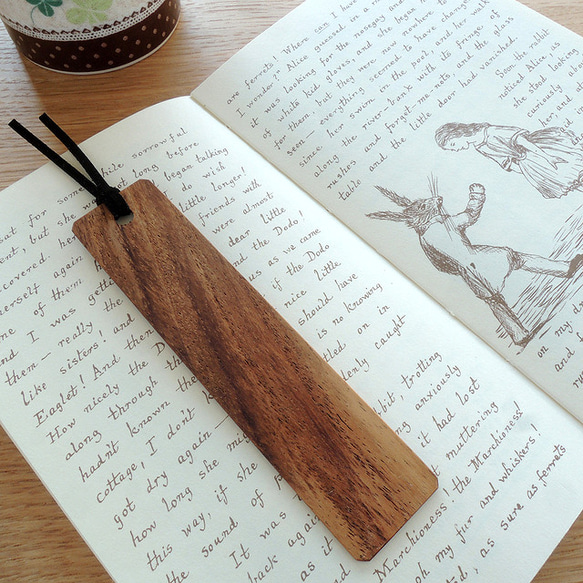 sat for some while sorrowful
but she long before
covered her began talking
erself again do wish
e of them little longer!
nd I was gett friends with
them — really the were almost
like sisters! and dear little
Eaglet! And the and the Dodo!
How nicely the D us as we came
along through the if the Dodo
hadn't known the nice little
cottage, I don't k should have
got dry again — is no knowing
how long she mig ttled on in
this way, if she denly caught
the sound of
It was bit, trotting
back again anxiously
it had lost
muttering
Marchioness, the Marchioness!
oh my fur and whiskers!
, as sure as ferrets
are ferrets! Where can I have
I wonder?" Alice guessed in a m
it was looking for the nosegay and
of white kid gloves, and she began
for them, but they were now nowhere to
seen — everything seemed to have change
since her swim in the pool, and her walk
along the river-bank with its fringe of
rushes and forget-me-nots, and the glass
table and the little door had vanished.
Soon the rabbit
noticed Alice, as
she stood looking
curiously a
her, and